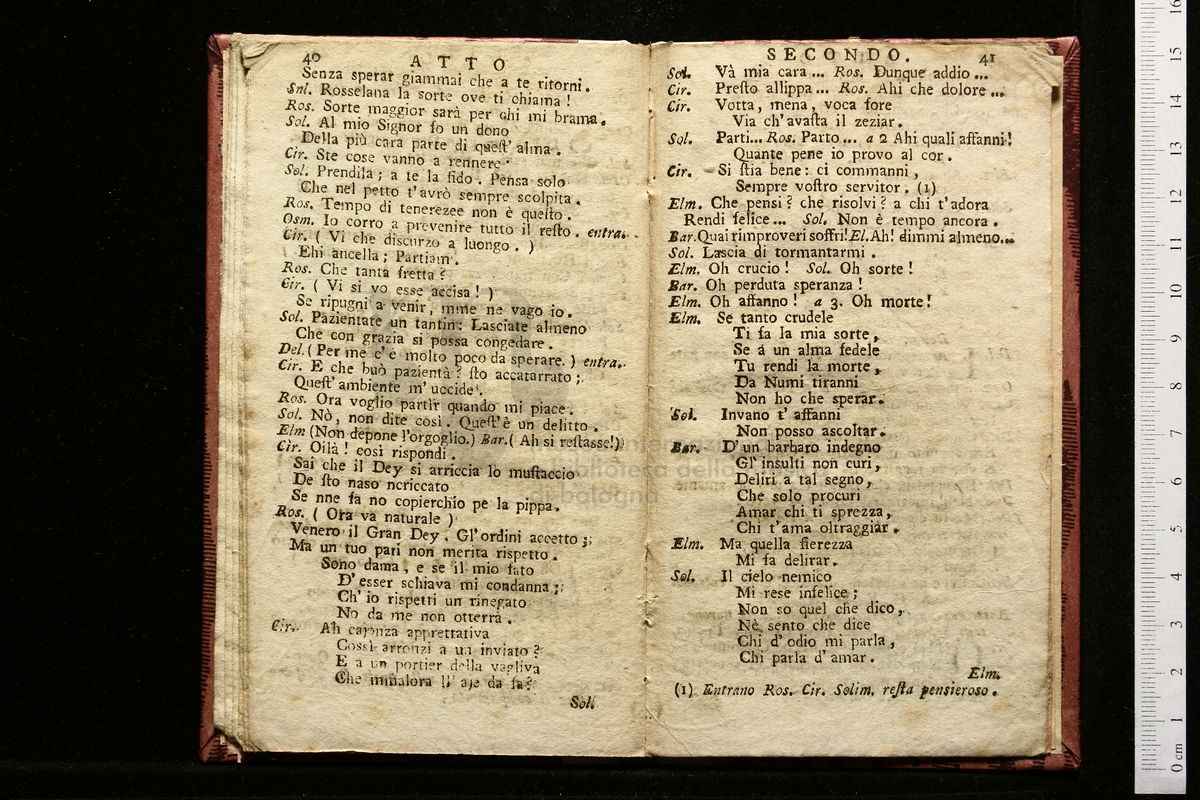 40
ATTO
Senza sperar giammai che a te ritorni.
Snl. Rosselana la sorte ove ti chiama!
Ros. Sorte maggior sarà per chi mi brama.
Sol. Al mio Signor fo un dono
Della più cara parte di quest' alma.
Cir. Ste cose vanno a rennere
Sol. Prendila; a te la fido. Pensa solo
Che nel petto t'avrò sempre scolpita.
Ros. Tempo di tenerezee non è questo.
Osm. Io corro a prevenire tutto il resto. entra.
Cir. (Vi che discurzo a luongo.)
Ehi ancella; Partiam.
Ros. Che tanta fretta?
Cir. (Vi si vo esse accisa!)
Se ripugni a venir, mme ne vago io.
Sol. Pazientate un tantin: Lasciate almeno
Che con grazia si possa congedare.
Del. (Per me c'è molto poco da sperare.) entra.
Cir. E che buò pazientà? sto accatarrato;
Quest' ambiente m' uccide.
Ros. Ora voglio partir quando mi piace.
Sol. Nò, non dite così. Quest'è un delitto.
Elm (Non depone l'orgoglio.) Bar. (Ah si restasse!)
Cir. Oilà! così rispondi.
Sai che il Dey si arriccia lo mustaccio
De sto naso ncriccato
Se nne fa no copierchio pe la pippa.
Ros. (Ora va naturale)
Venero il Gran Dey. Gl'ordini accetto;
Ma un tuo pari non merita rispetto.
Sono dama, e se il mio fato
D' esser schiava mi condanna;
Ch' io rispetti un rinegato
No da me non otterrà.
Cir. Ah cajonza apprettativa
Cossì arronzi a un inviato?
E a un portier della vagliva
Che minalora ll' aje da fa?
Sol.
SECONDO.
41
Sol. Và mia cara ... Ros. Dunque addio ...
Cir. Presto allippa ... Ros. Ahi che dolore ...
Cir. Votta, mena, voca fore
Via ch' avasta il zeziar.
Sol. Parti... Ros. Parto ... a 2 Ahi quali affanni!
Quante pene io provo al cor.
Cir. Si stia bene: ci commanni,
Sempre vostro servitor. (1)
Elm. Che pensi? che risolvi? a chi t'adora
Rendi felice ... Sol. Non è tempo ancora.
Bar. Quai rimproveri soffri! El. Ah! dimmi almeno...
Sol. Lascia di tormantarmi.
Elm. Oh crucio! Sol. Oh sorte!
Bar. Oh perduta speranza!
Elm. Oh affanno! a 3. Oh morte!
Elm. Se tanto crudele
Ti fa la mia sorte,
Se á un alma fedele
Tu rendi la morte,
Da Numi tiranni
Non ho che sperar.
Sol. Invano t' affanni
Non posso ascoltar.
Bar. D' un barbaro indegno
Gl' insulti non curi,
Deliri a tal segno,
Che solo procuri
Amar chi ti sprezza,
Chi t'ama oltraggiar.
Elm. Ma quella fierezza
Mi fa delirar.
Sol. Il cielo nemico
Mi rese infelice;
Non so quel che dico,
Nè sento che dice
Chi d' odio mi parla,
Chi parla d' amar.
Elm.
(1) Entrano Ros. Cir. Solim. resta pensieroso.